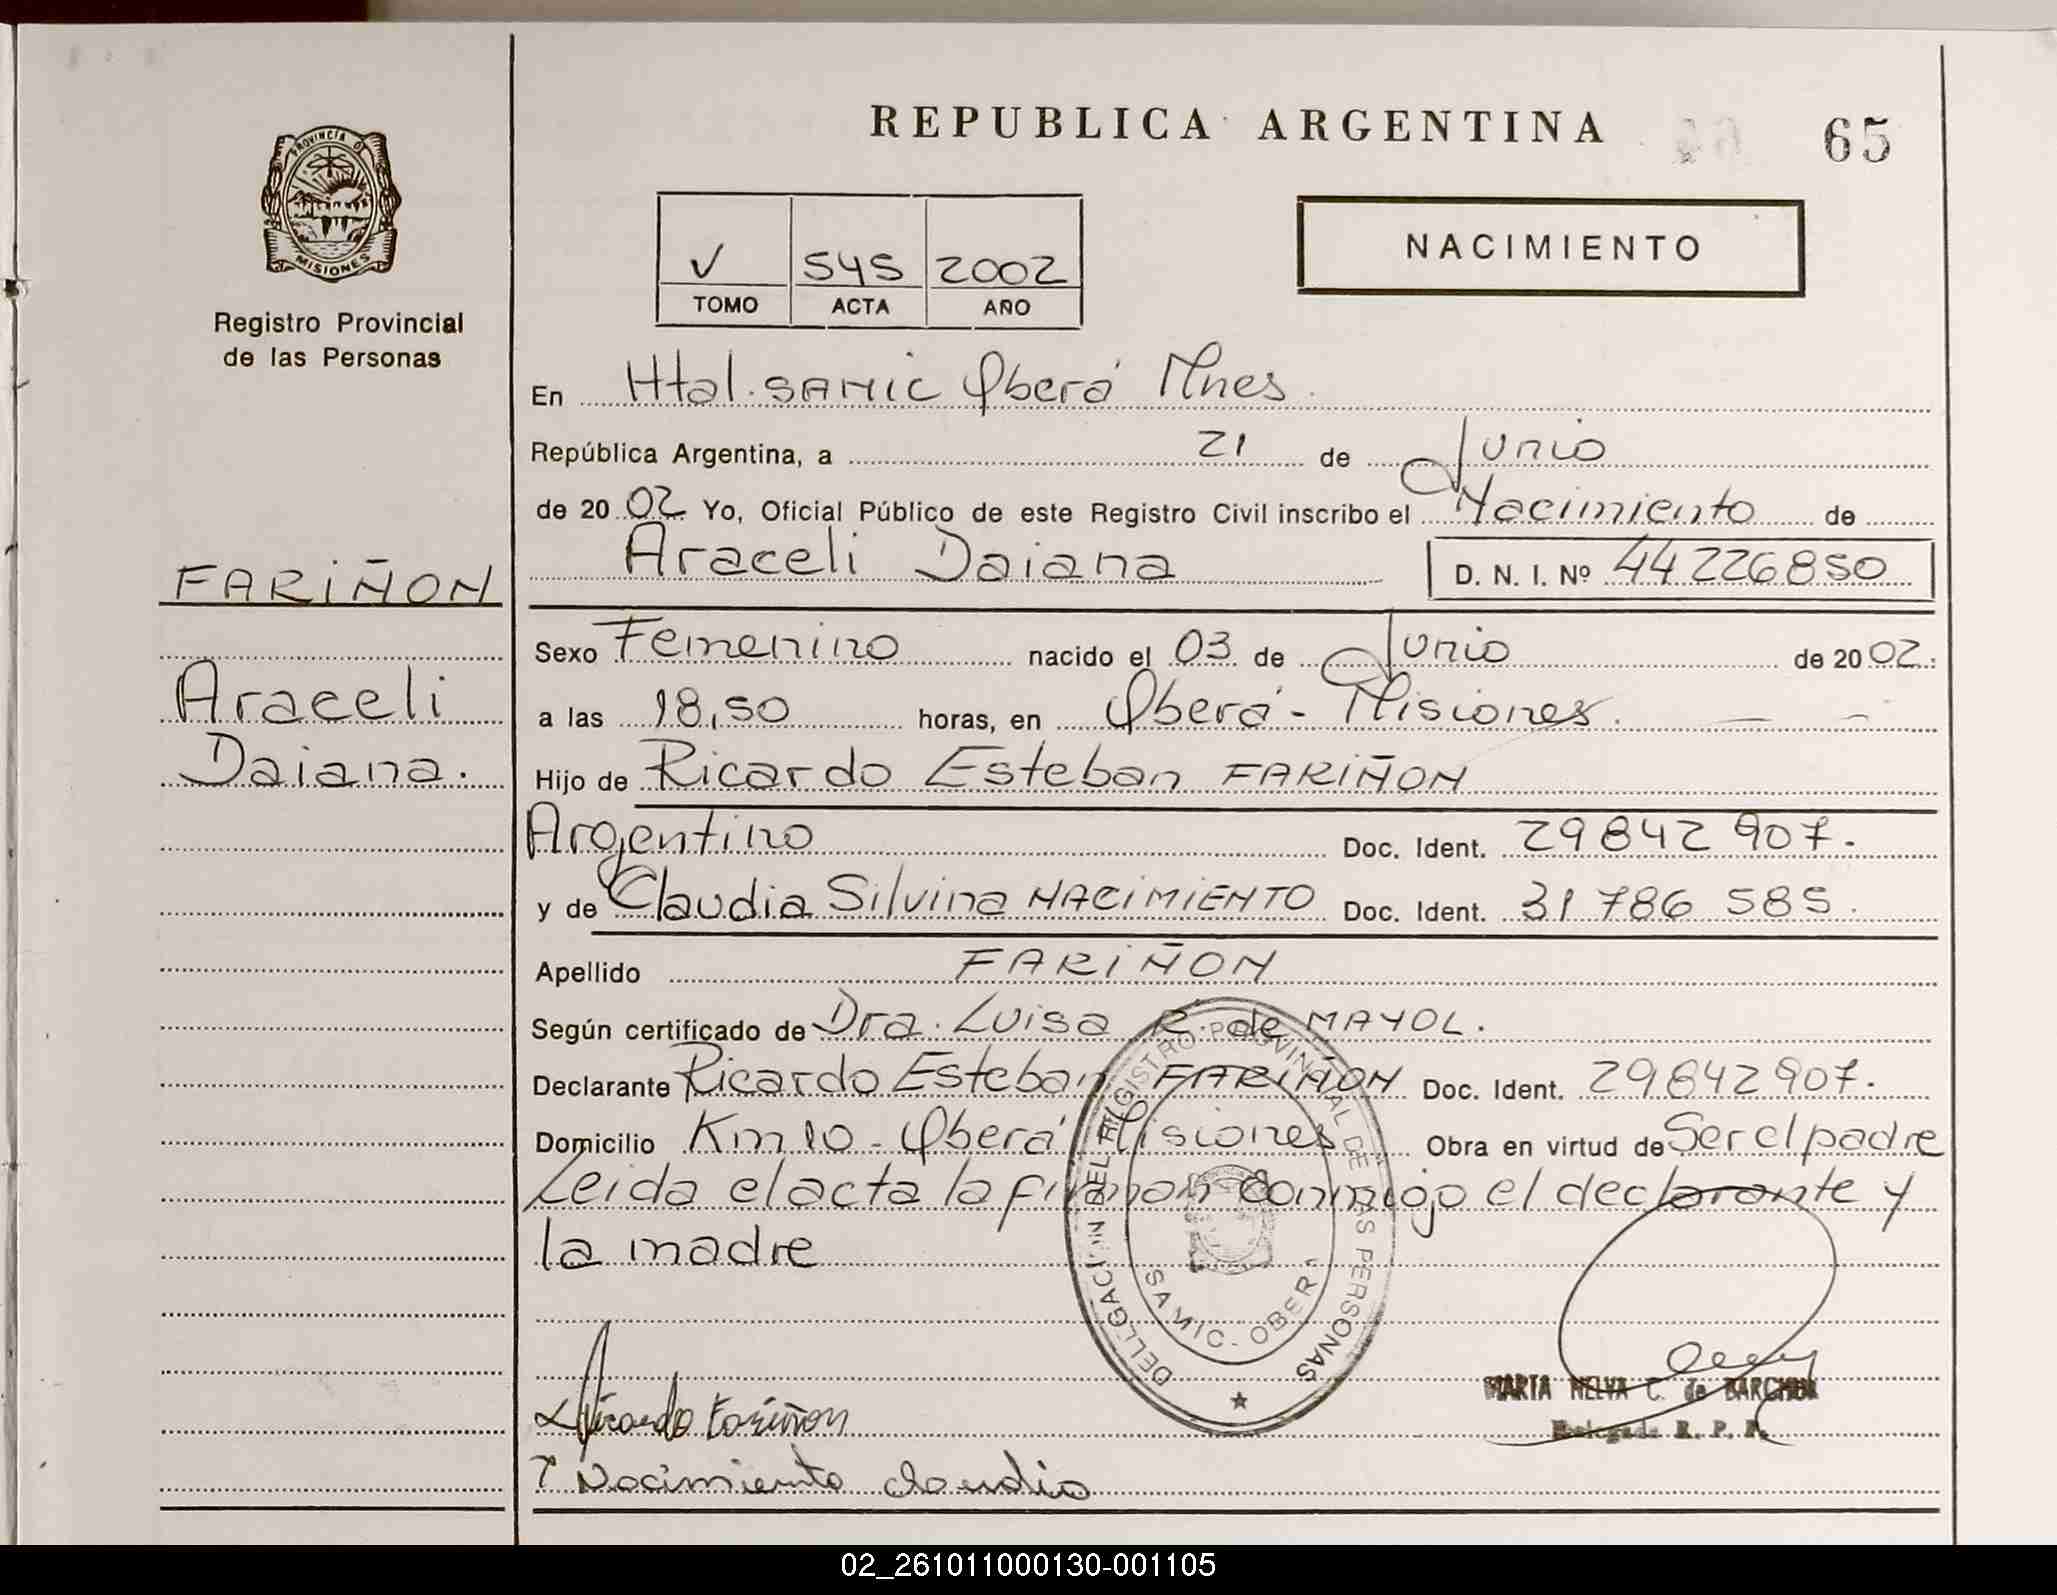 REPUBLICA ARGENTINA
65
PROVINCIA D
MISIONES
Registro Provincial
de las Personas
V 545 2002
TOMO ACTA AÑO
NACIMIENTO
En Htal. SAMIC Oberá Mnes.
República Argentina, a 21 de Junio
de 2002 Yo, Oficial Público de este Registro Civil inscribo el Nacimiento de
Araceli Daiana D. N. I. Nº 44226850
FARIÑON
Araceli
Daiana.
Sexo Femenino nacido el 03 de Junio de 2002.
a las 18,50 horas, en Oberá - Misiones. — —
Hijo de Ricardo Esteban FARIÑON
Argentino Doc. Ident. 29842 907.
y de Claudia Silvina NACIMIENTO Doc. Ident. 31 786 585.
Apellido FARIÑON
Según certificado de Dra. Luisa R. de MAYOL.
Declarante Ricardo Esteban FARIÑON Doc. Ident. 29842907.
Domicilio Km 10 - Oberá Misiones Obra en virtud de Ser el padre
Leida el acta la firman conmigo el declarante y
la madre
DELGACION DEL REGISTRO PROVINCIAL DE LAS PERSONAS
SAMIC - OBER
MARTA NELVA C. de
Delegada R. P. P.
Ricardo Fariñon
Nacimiento claudia
02_261011000130-001105